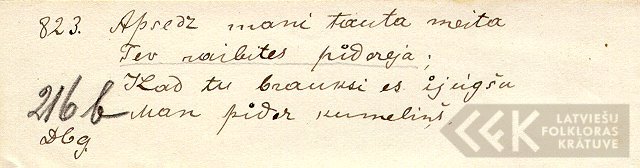 823. Apsedz mani tauta meita
Tev raibites pīdereja;
Kad tu brauksi es ijūgšu
216 b Man pīder kumeliņš,
Dbg.
LATVIEŠU
FOLKLORAS
KRĀTUVE